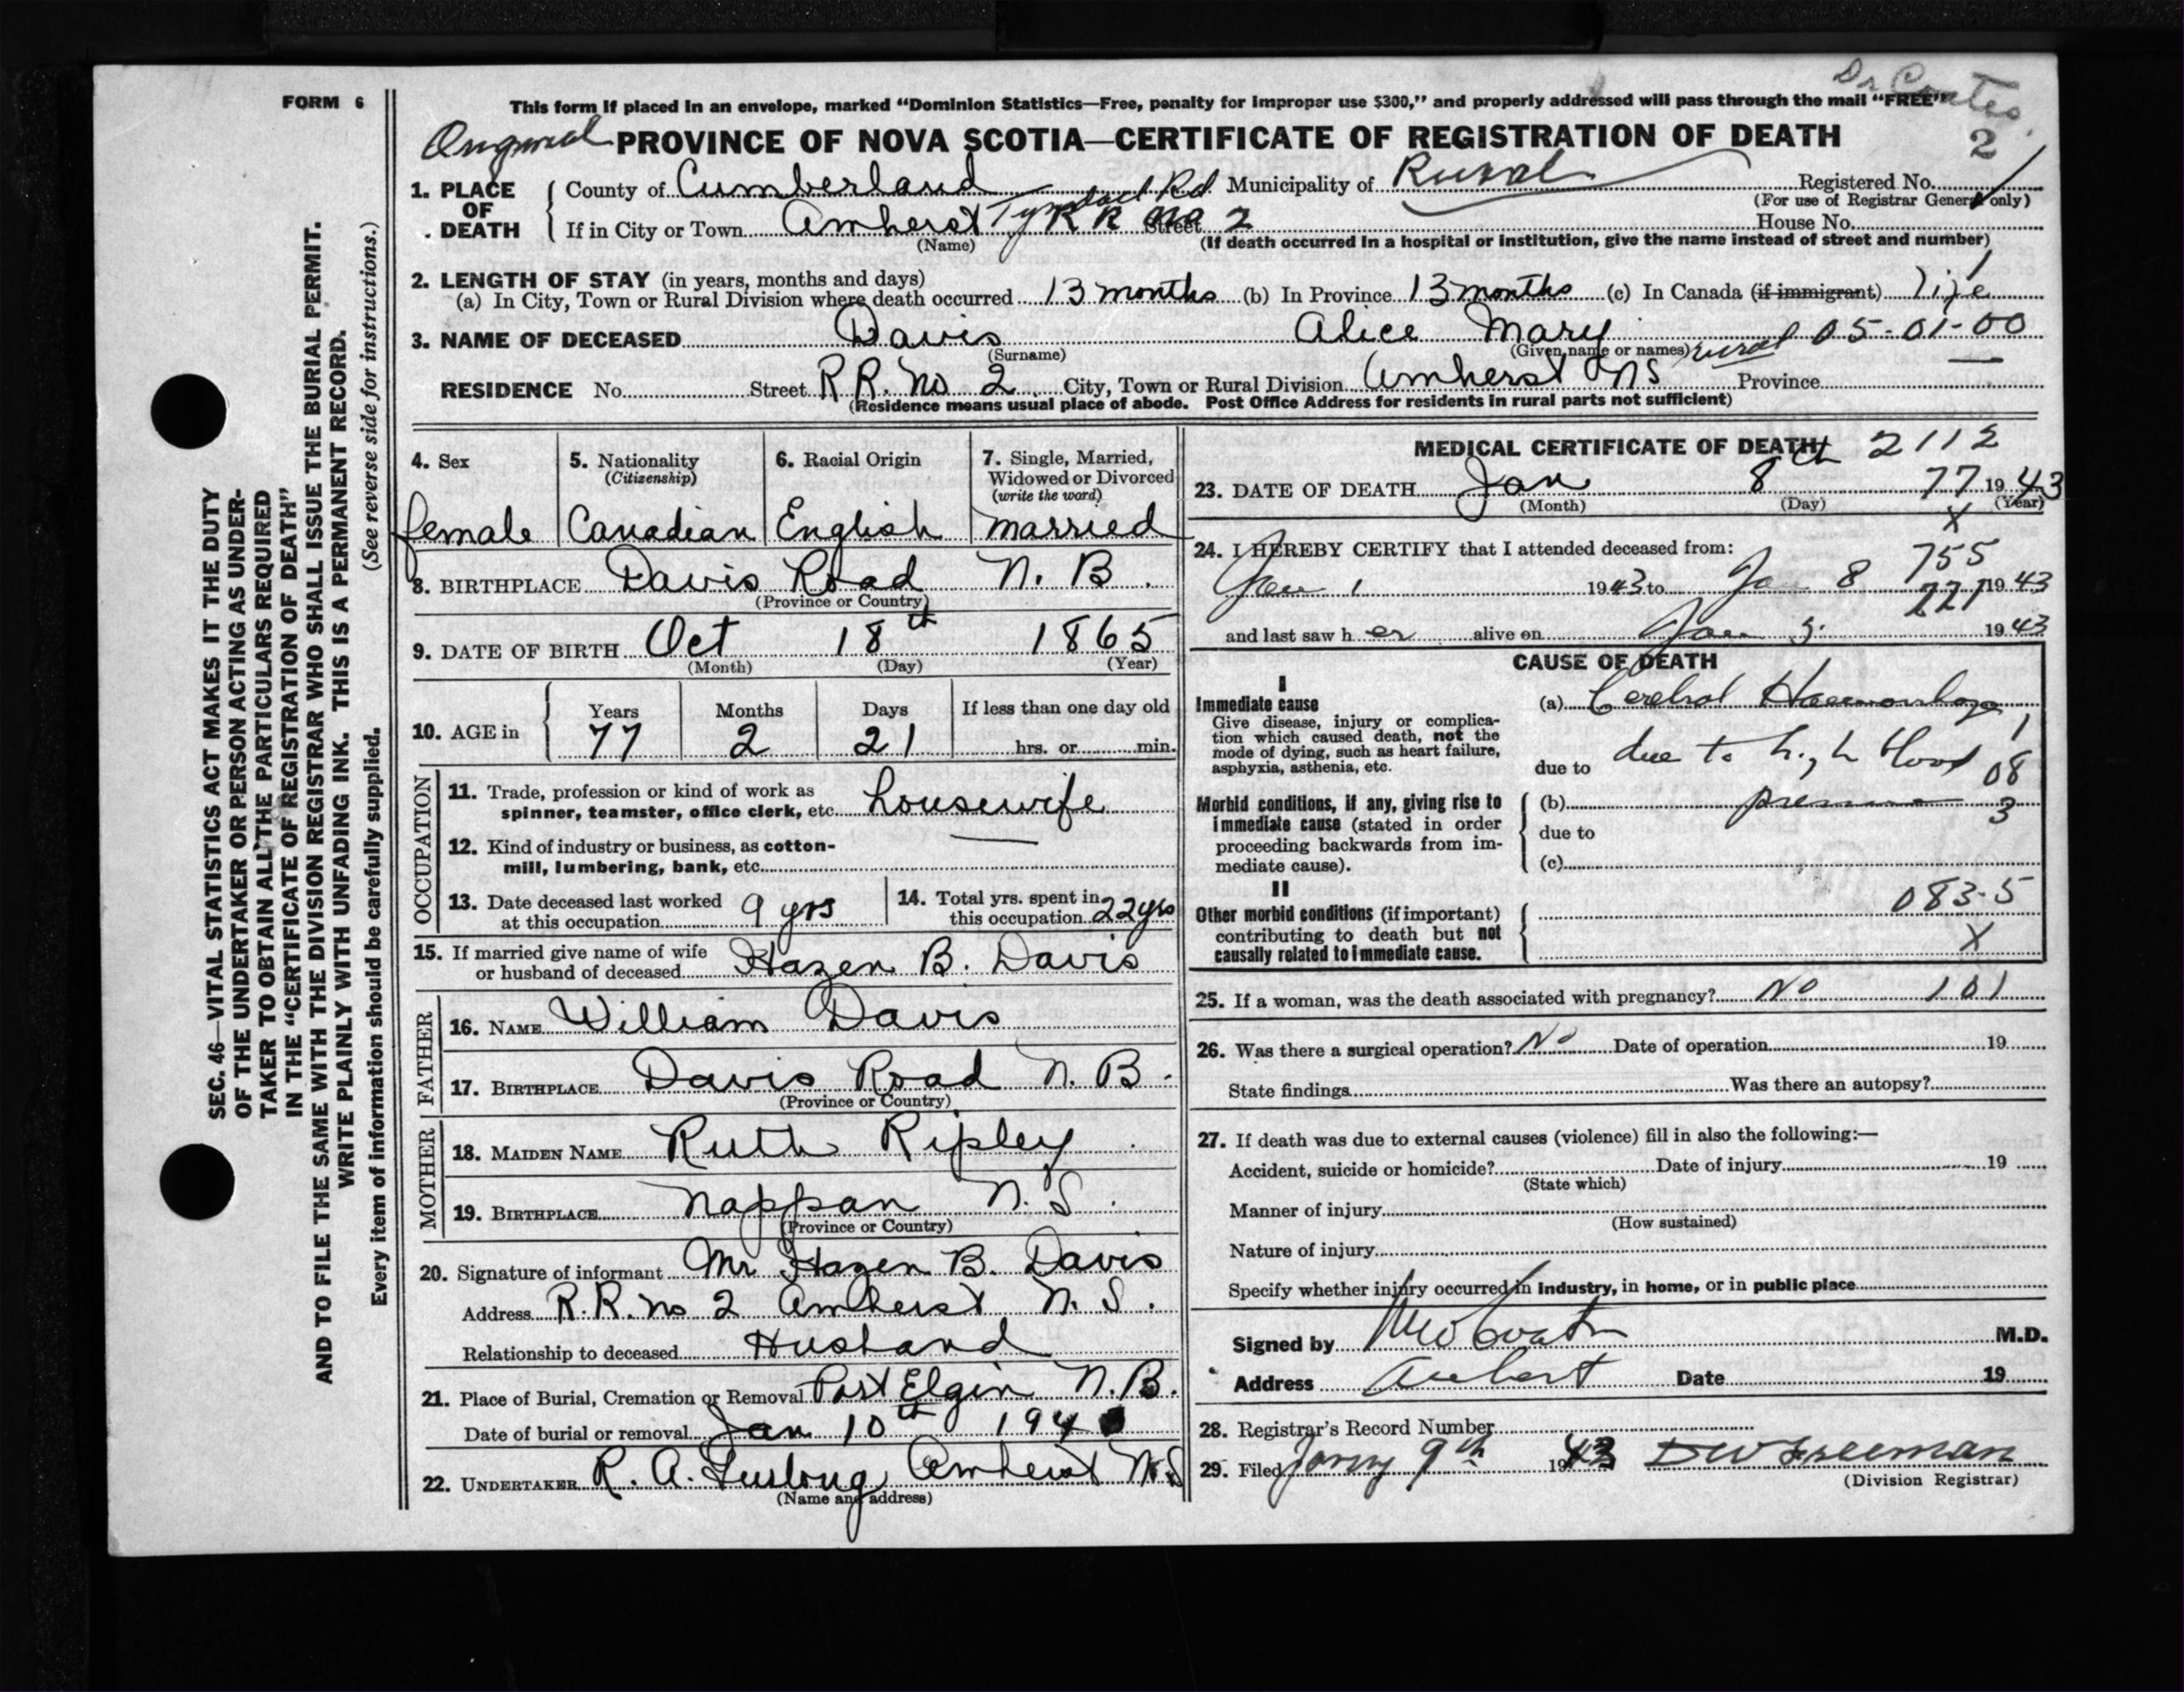 FORM 6
Dr Coates
This form if placed in an envelope, marked “Dominion Statistics—Free, penalty for improper use $300,” and properly addressed will pass through the mail “FREE”
Original PROVINCE OF NOVA SCOTIA—CERTIFICATE OF REGISTRATION OF DEATH 2
1. PLACE OF DEATH County of Cumberland Municipality of Rural Registered No.
(For use of Registrar General only)
Tyndal Rd
If in City or Town Amherst R R No 2 Street House No.
(Name) (If death occurred in a hospital or institution, give the name instead of street and number)
2. LENGTH OF STAY (in years, months and days) 1
(a) In City, Town or Rural Division where death occurred 13 months (b) In Province 13 months (c) In Canada (if immigrant) life
3. NAME OF DECEASED Davis Alice Mary 05-01-00
(Surname) (Given name or names) rural
RESIDENCE No. Street R R. No 2 City, Town or Rural Division Amherst NS Province
(Residence means usual place of abode. Post Office Address for residents in rural parts not sufficient)
4. Sex 5. Nationality (Citizenship) 6. Racial Origin 7. Single, Married, Widowed or Divorced (write the word)
female Canadian English married
8. BIRTHPLACE Davis Road N. B.
(Province or Country)
9. DATE OF BIRTH Oct 18th 1865
(Month) (Day) (Year)
10. AGE in Years Months Days If less than one day old
77 2 21 hrs. or min.
OCCUPATION
11. Trade, profession or kind of work as
spinner, teamster, office clerk, etc. housewife
12. Kind of industry or business, as cotton-
mill, lumbering, bank, etc. —
13. Date deceased last worked
at this occupation 9 yrs
14. Total yrs. spent in
this occupation 22 yrs
15. If married give name of wife
or husband of deceased Hazen B. Davis
FATHER
16. NAME William Davis
17. BIRTHPLACE Davis Road N. B.
(Province or Country)
MOTHER
18. MAIDEN NAME Ruth Ripley
19. BIRTHPLACE Nappan N. S.
(Province or Country)
20. Signature of informant Mr Hazen B. Davis
Address R. R. No 2 Amherst N. S.
Relationship to deceased Husband
21. Place of Burial, Cremation or Removal Port Elgin N. B.
Date of burial or removal Jan 10th 194
22. UNDERTAKER R. A. Furlong Amherst N.S
(Name and address)
MEDICAL CERTIFICATE OF DEATH 2112
23. DATE OF DEATH Jan 8th 77 1943
(Month) (Day) (Year)
X
24. I HEREBY CERTIFY that I attended deceased from: 755
Jan 1 1943 to Jan 8 221 1943
and last saw her alive on Jan 1943
CAUSE OF DEATH
I
Immediate cause (a) Cerebral Haemorrhage
Give disease, injury or complica-
tion which caused death, not the 1
mode of dying, such as heart failure,
asphyxia, asthenia, etc. due to due to high blood 08
Morbid conditions, if any, giving rise to (b) pressure 3
immediate cause (stated in order due to
proceeding backwards from im-
mediate cause). (c)
II
083·5
Other morbid conditions (if important)
contributing to death but not X
causally related to immediate cause.
25. If a woman, was the death associated with pregnancy? No 101
26. Was there a surgical operation? No Date of operation 19
State findings Was there an autopsy?
27. If death was due to external causes (violence) fill in also the following:—
Accident, suicide or homicide? Date of injury 19
(State which)
Manner of injury
(How sustained)
Nature of injury
Specify whether injury occurred in industry, in home, or in public place
Signed by M.D.
Address Amherst Date 19
28. Registrar's Record Number
29. Filed 9th 1943 D W Freeman
(Division Registrar)
SEC. 46—VITAL STATISTICS ACT MAKES IT THE DUTY
OF THE UNDERTAKER OR PERSON ACTING AS UNDER-
TAKER TO OBTAIN ALL THE PARTICULARS REQUIRED
IN THE “CERTIFICATE OF REGISTRATION OF DEATH”
AND TO FILE THE SAME WITH THE DIVISION REGISTRAR WHO SHALL ISSUE THE BURIAL PERMIT.
WRITE PLAINLY WITH UNFADING INK. THIS IS A PERMANENT RECORD.
Every item of information should be carefully supplied. (See reverse side for instructions.)